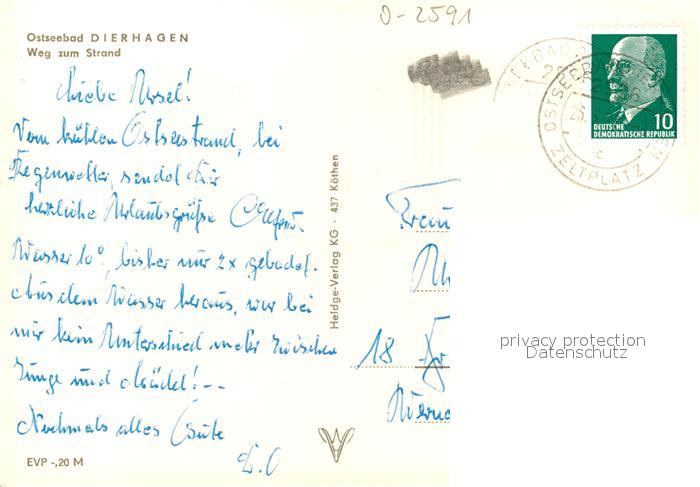 O-2591
Ostseebad DIERHAGEN
Weg zum Strand
Liebe Ursel!
Vom kühlen Ostseestrand, bei
Regenwetter, sendet Dir
herzliche Urlaubsgrüße
Wasser 10°, bisher nur 2x gebadet.
Aus dem Wasser heraus, war bei
mir kein Unterschied mehr zwischen
Junge und Mädel! --
Nochmals alles Gute
EVP -,20 M
Heldge-Verlag KG · 437 Köthen
OSTSEEBAD
ZELTPLATZ
c
DEUTSCHE
DEMOKRATISCHE REPUBLIK
10
Frau
18
privacy protection
Datenschutz